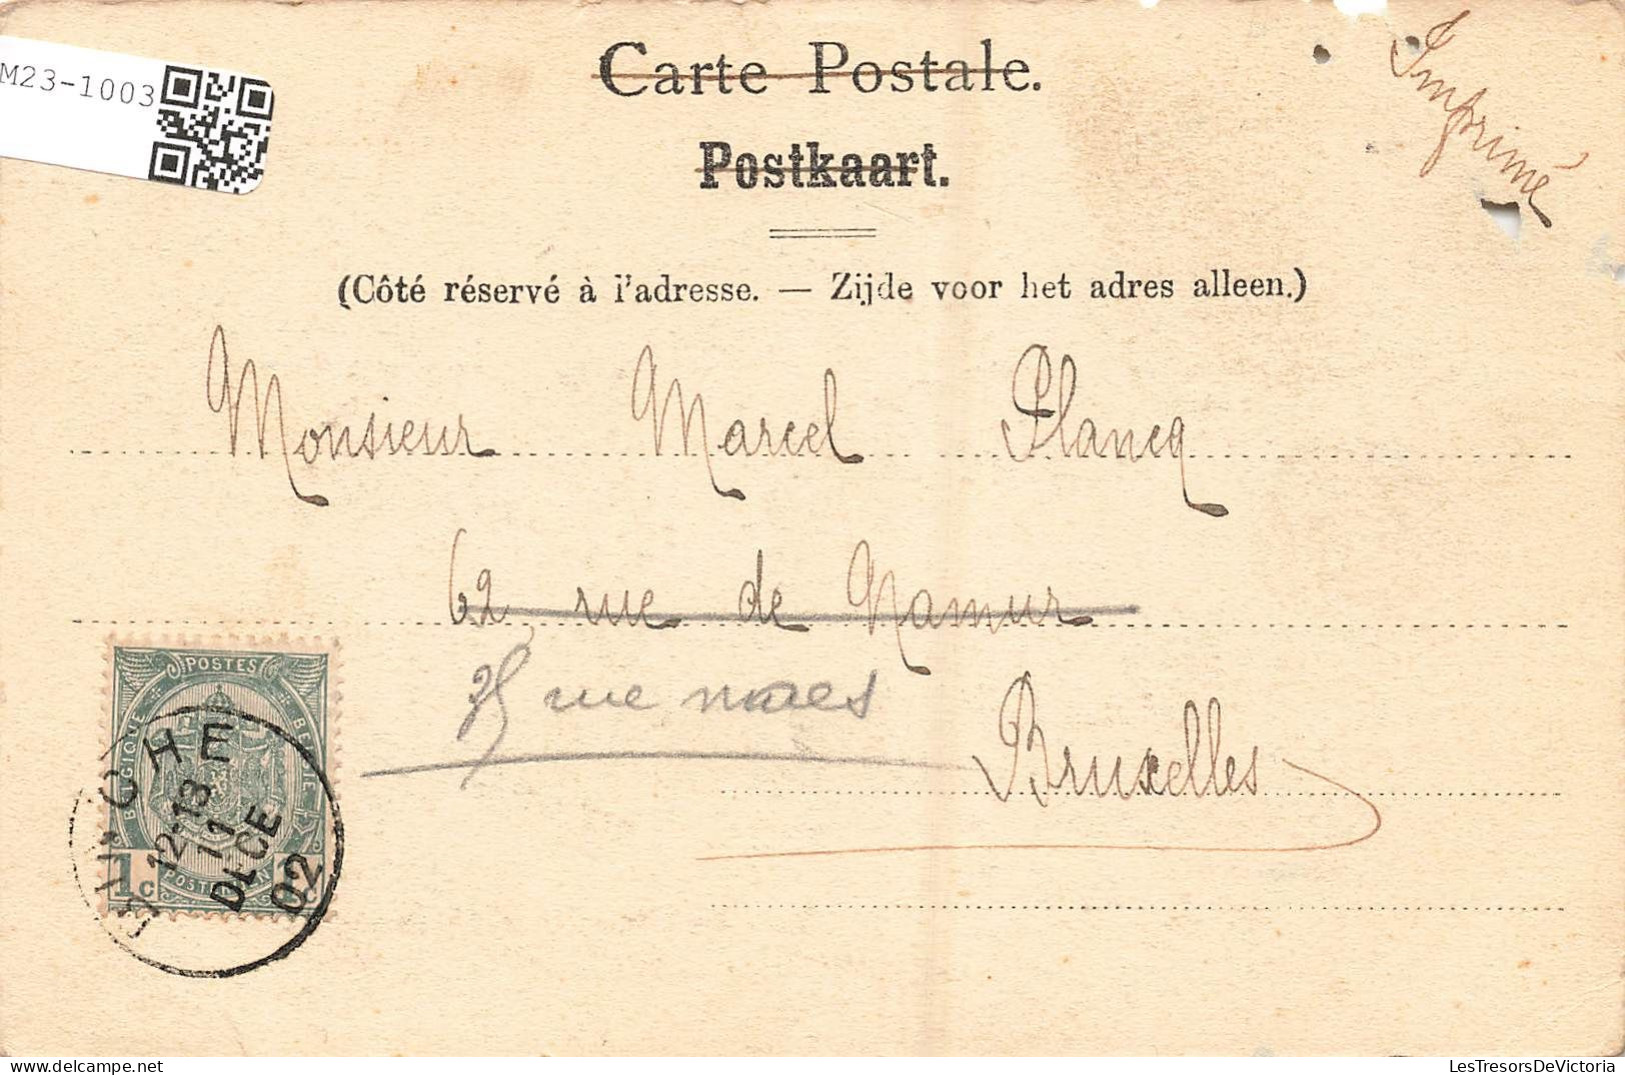 M23-1003
Carte Postale.
Imprimé
Postkaart.
(Côté réservé à l'adresse. — Zijde voor het adres alleen.)
Monsieur Marcel Plancq
62 rue de Namur
35 rue
Bruxelles
POSTES
BELGIQUE BELGIE
BINCHE
12-13
11
DECE
02
1c POSTERIJEN 1c
LesTresorsDeVictoria